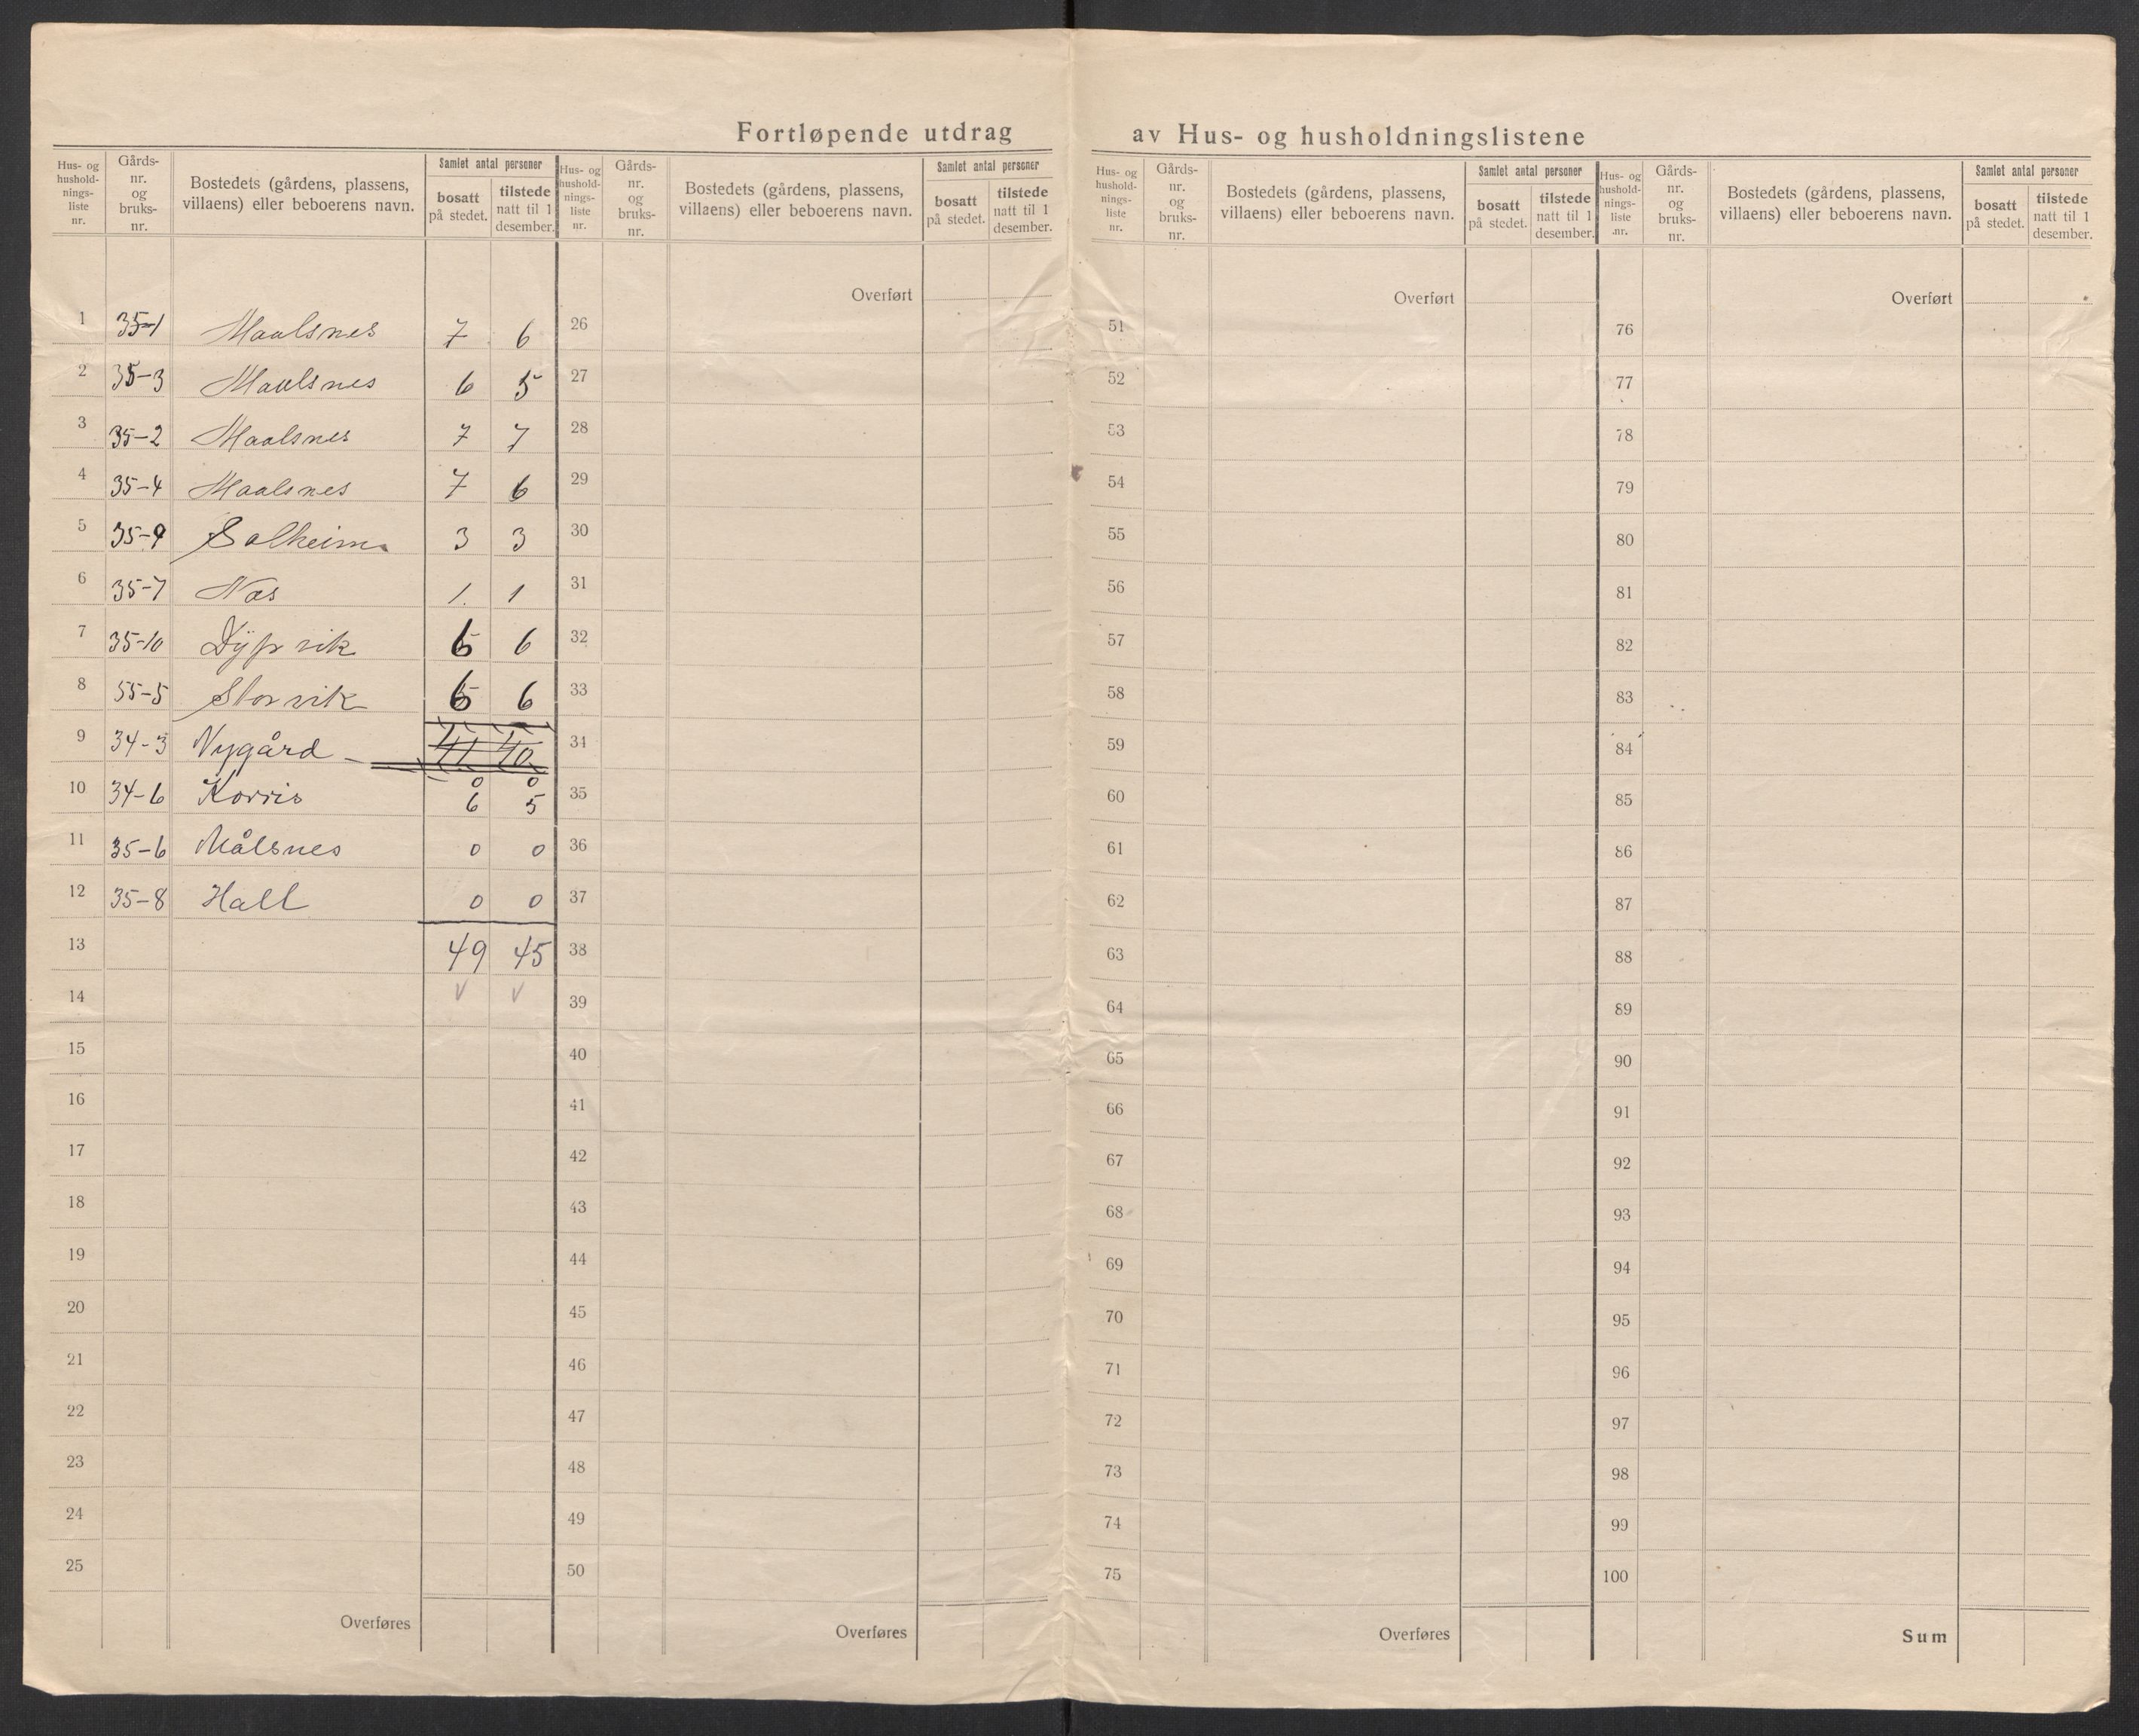 Fortløpende utdrag av Hus- og husholdningslistene
Hus- og hushold- nings- liste nr. | Gårds- nr. og bruks- nr. | Bostedets (gårdens, plassens, villaens) eller beboerens navn. | Samlet antal personer | bosatt på stedet. | tilstede natt til 1 desember.
Hus- og hushold- nings- liste nr. | Gårds- nr. og bruks- nr. | Bostedets (gårdens, plassens, villaens) eller beboerens navn. | Samlet antal personer | bosatt på stedet. | tilstede natt til 1 desember.
Hus- og hushold- nings- liste nr. | Gårds- nr. og bruks- nr. | Bostedets (gårdens, plassens, villaens) eller beboerens navn. | Samlet antal personer | bosatt på stedet. | tilstede natt til 1 desember.
Hus- og hushold- nings- liste nr. | Gårds- nr. og bruks- nr. | Bostedets (gårdens, plassens, villaens) eller beboerens navn. | Samlet antal personer | bosatt på stedet. | tilstede natt til 1 desember.
Overført Overført Overført
1 35-1 Maalsnes 7 6 26 51 76
2 35-3 Maalsnes 6 5 27 52 77
3 35-2 Maalsnes 7 7 28 53 78
4 35-4 Maalsnes 7 6 29 54 79
5 35-9 Solheim 3 3 30 55 80
6 35-7 Nes 1. 1 31 56 81
7 35-10 Dÿpvik 6 6 32 57 82
8 55-5 Storvik 6 6 33 58 83
9 34-3 Nygård 41 40 34 59 84
0 0
10 34-6 Korris 6 5 35 60 85
11 35-6 Målsnes 0 0 36 61 86
12 35-8 Hall 0 0 37 62 87
13 49 45 38 63 88
14 V V 39 64 89
15 40 65 90
16 41 66 91
17 42 67 92
18 43 68 93
19 44 69 94
20 45 70 95
21 46 71 96
22 47 72 97
23 48 73 98
24 49 74 99
25 50 75 100
Overføres Overføres Overføres Sum